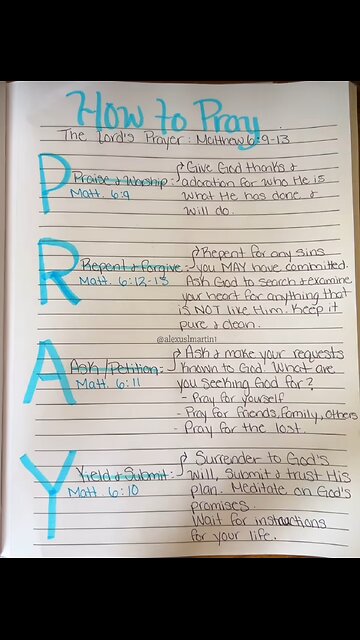 How to Pray
The Lord's Prayer: Matthew 6:9-13
P
Praise & Worship:
Matt. 6:9
Give God thanks &
adoration for who He is
what He has done &
will do.
R
Repent & Forgive:
Matt. 6:12-13
Repent for any sins
you MAY have committed.
Ask God to search & examine
your heart for anything that
is NOT like Him. Keep it
pure & clean.
@alexuslmartin1
A
Ask/Petition:
Matt. 6:11
Ask & make your requests
known to God. What are
you seeking God for?
- Pray for yourself
- Pray for friends, family, others
- Pray for the lost.
Y
Yield & Submit:
Matt. 6:10
Surrender to God's
Will, Submit & trust His
plan. Meditate on God's
promises.
Wait for instructions
for your life.